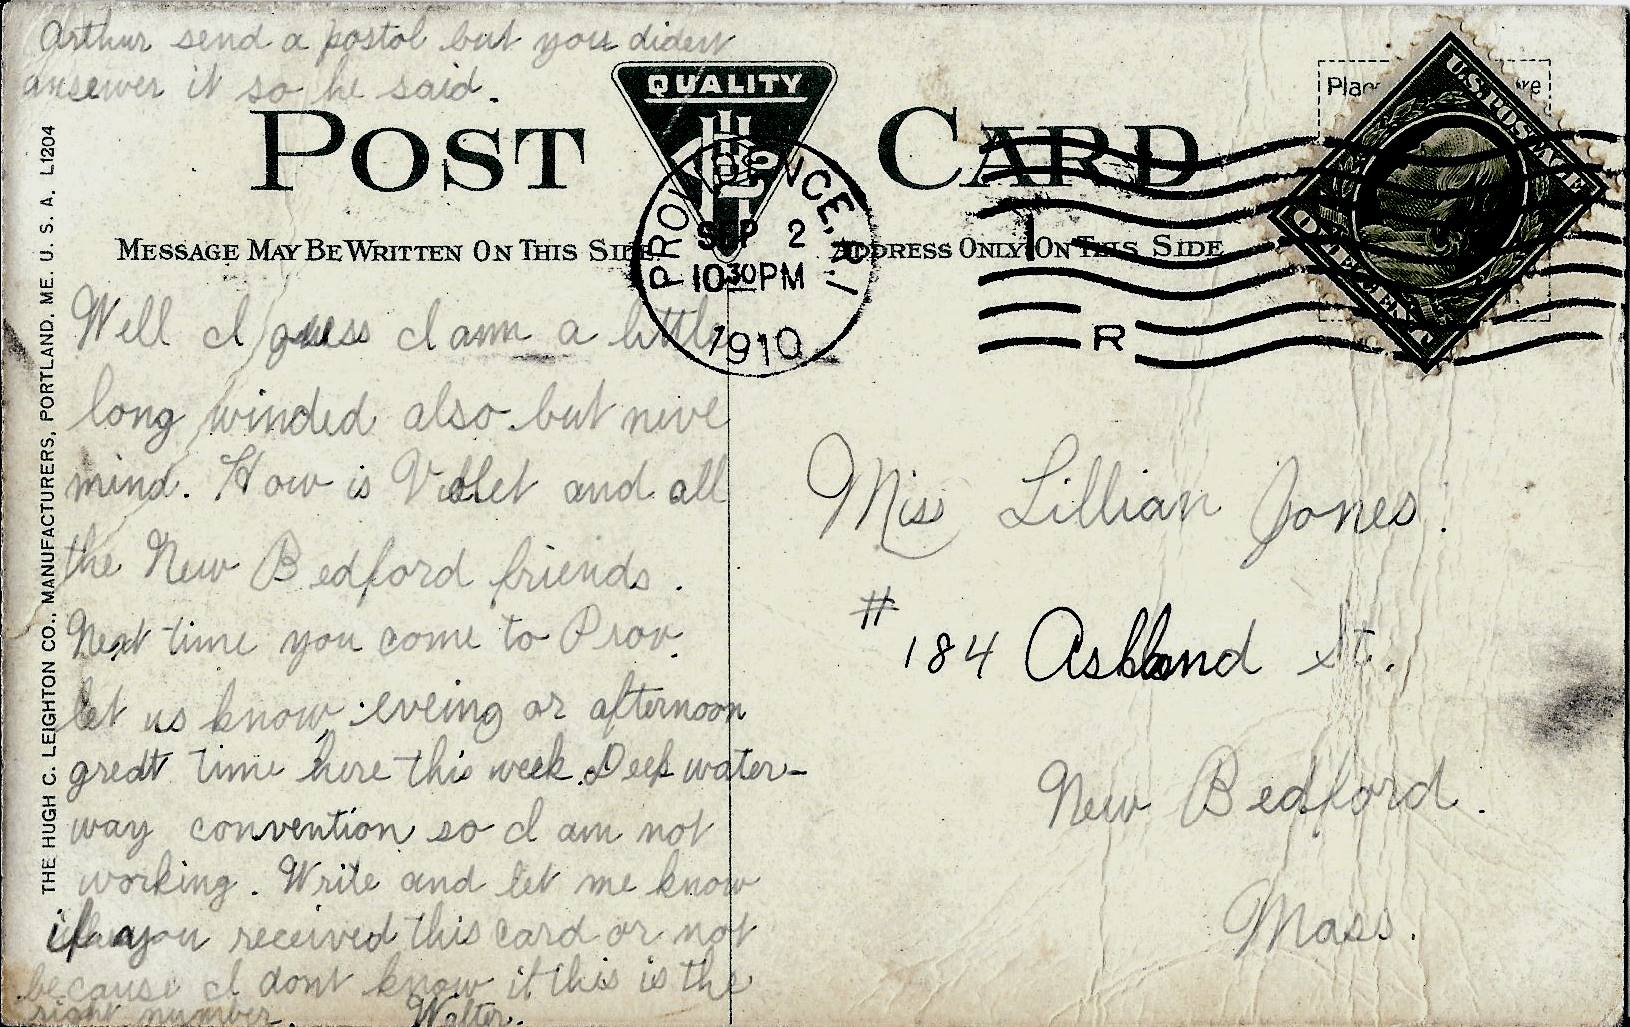 Arthur send a postol but you dident
ansewer it so he said.
QUALITY
POST CARD
PROVIDENCE, R.I.
SEP 2
10 30 PM
1910
R
U.S. POSTAGE
ONE CENT
MESSAGE MAY BE WRITTEN ON THIS SIDE
ADDRESS ONLY ON THIS SIDE
THE HUGH C. LEIGHTON CO., MANUFACTURERS, PORTLAND, ME. U. S. A. L1204
Well I guess I am a little
long winded also but neve
mind. How is Violet and all
the New Bedford friends.
Next time you come to Prov.
let us know, eveing or afternoon
gredt time here this week. Deep water-
way convention so I am not
working. Write and let me know
if you received this card or not
because I dont know if this is the
right number. Walter.
Miss Lillian Jones.
# 184 Ashland St.
New Bedford.
Mass.